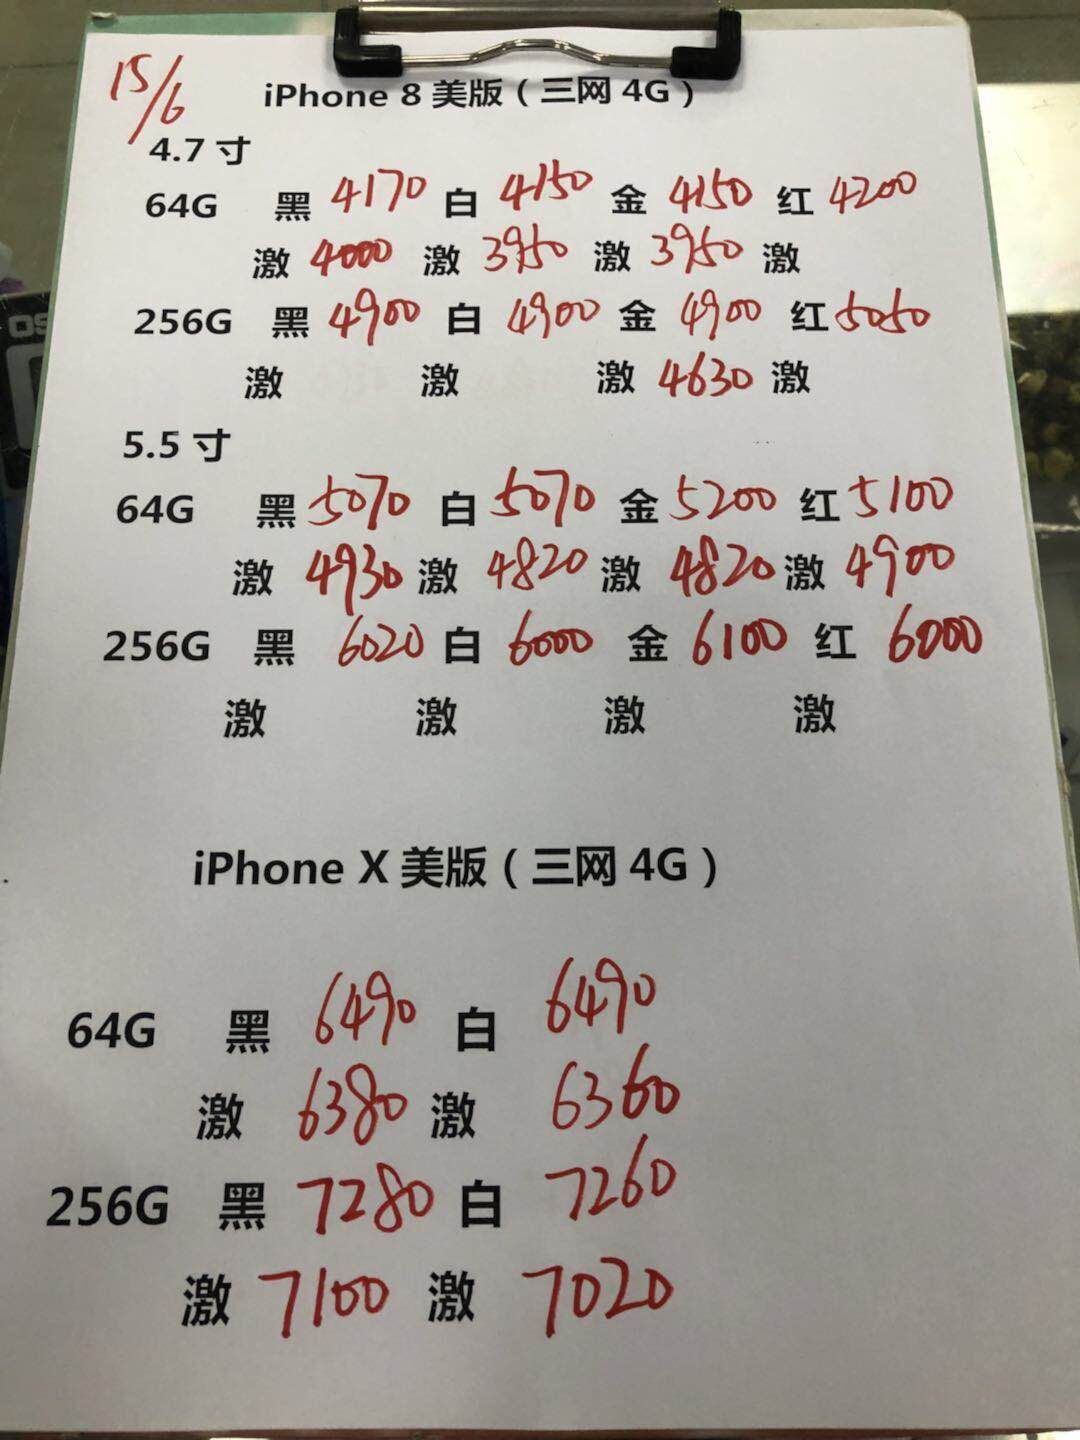 15/6
iPhone 8 美版（三网 4G）
4.7 寸
64G 黑 4170 白 4150 金 4150 红 4200
激 4000 激 3950 激 3950 激
256G 黑 4900 白 4900 金 4900 红 5050
激 激 激 4630 激
5.5 寸
64G 黑 5070 白 5070 金 5200 红 5100
激 4930 激 4820 激 4820 激 4900
256G 黑 6020 白 6000 金 6100 红 6000
激 激 激 激
iPhone X 美版（三网 4G）
64G 黑 6490 白 6490
激 6380 激 6360
256G 黑 7280 白 7260
激 7100 激 7020